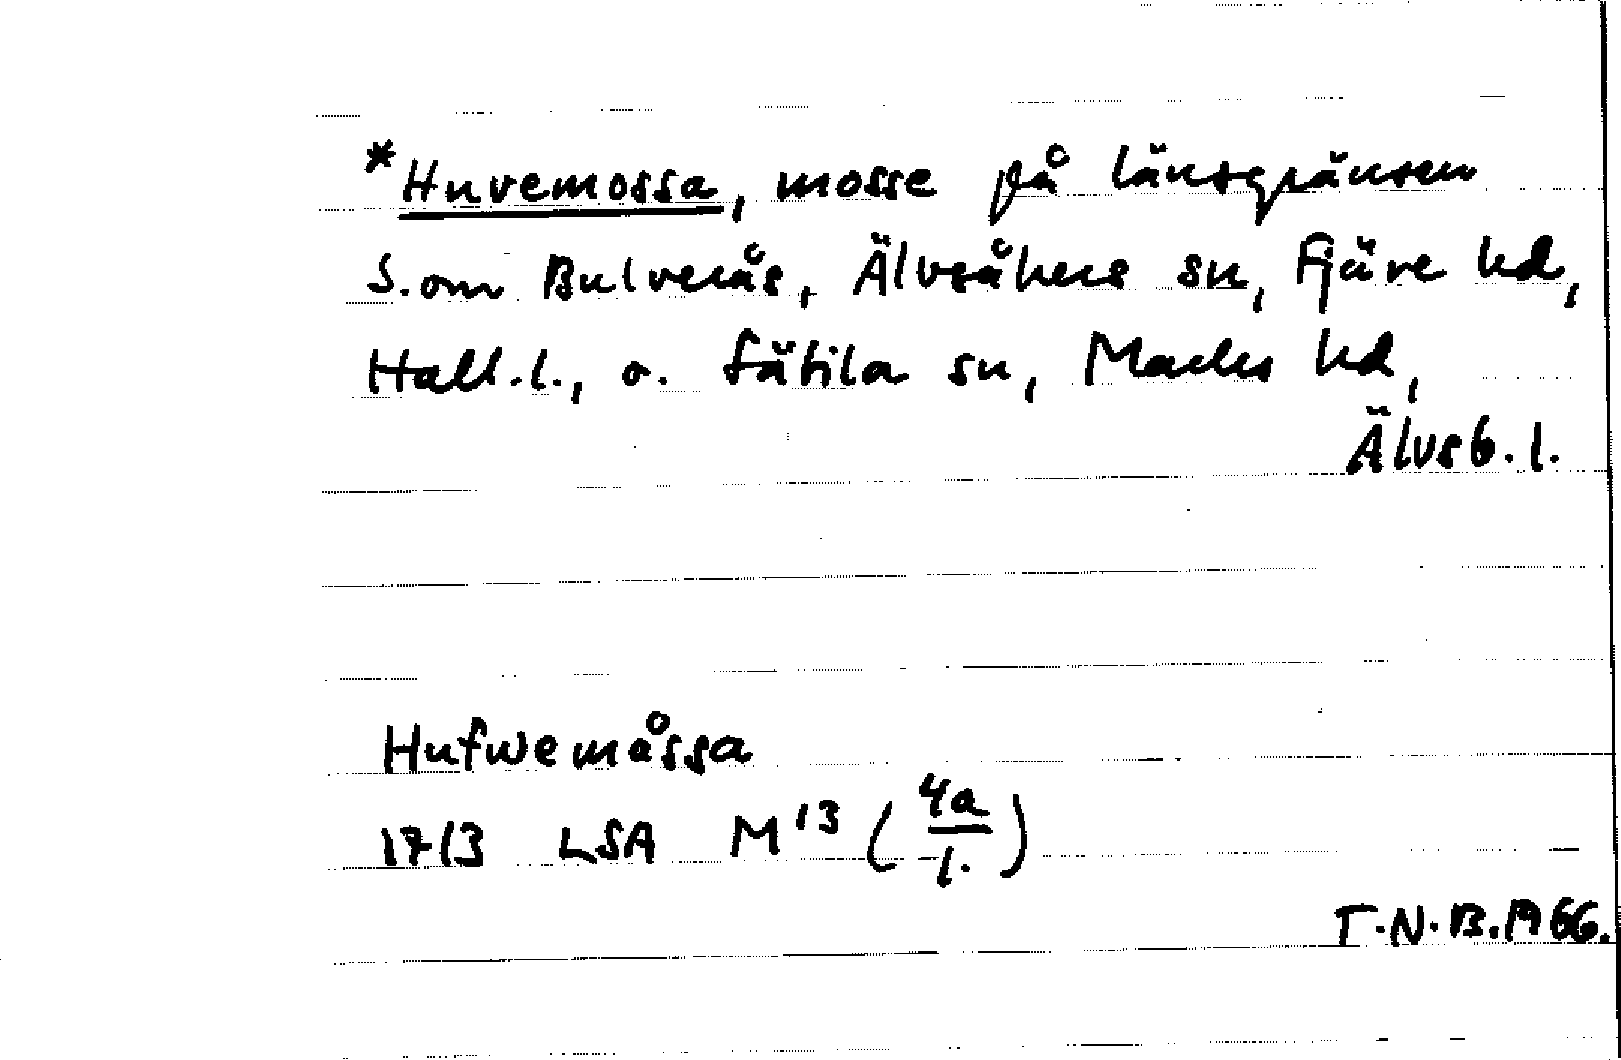 *Huvemossa, mosse på länsgränsen
S. om Bulverås, Älvsåkers sn, Fjäre hd,
Hall. l., o. Fätila sn, Marks hd,
Älvsb. l.
Hufwemåssa
1713 LSA M13 (4a/1.)
T.N.B. 1966.